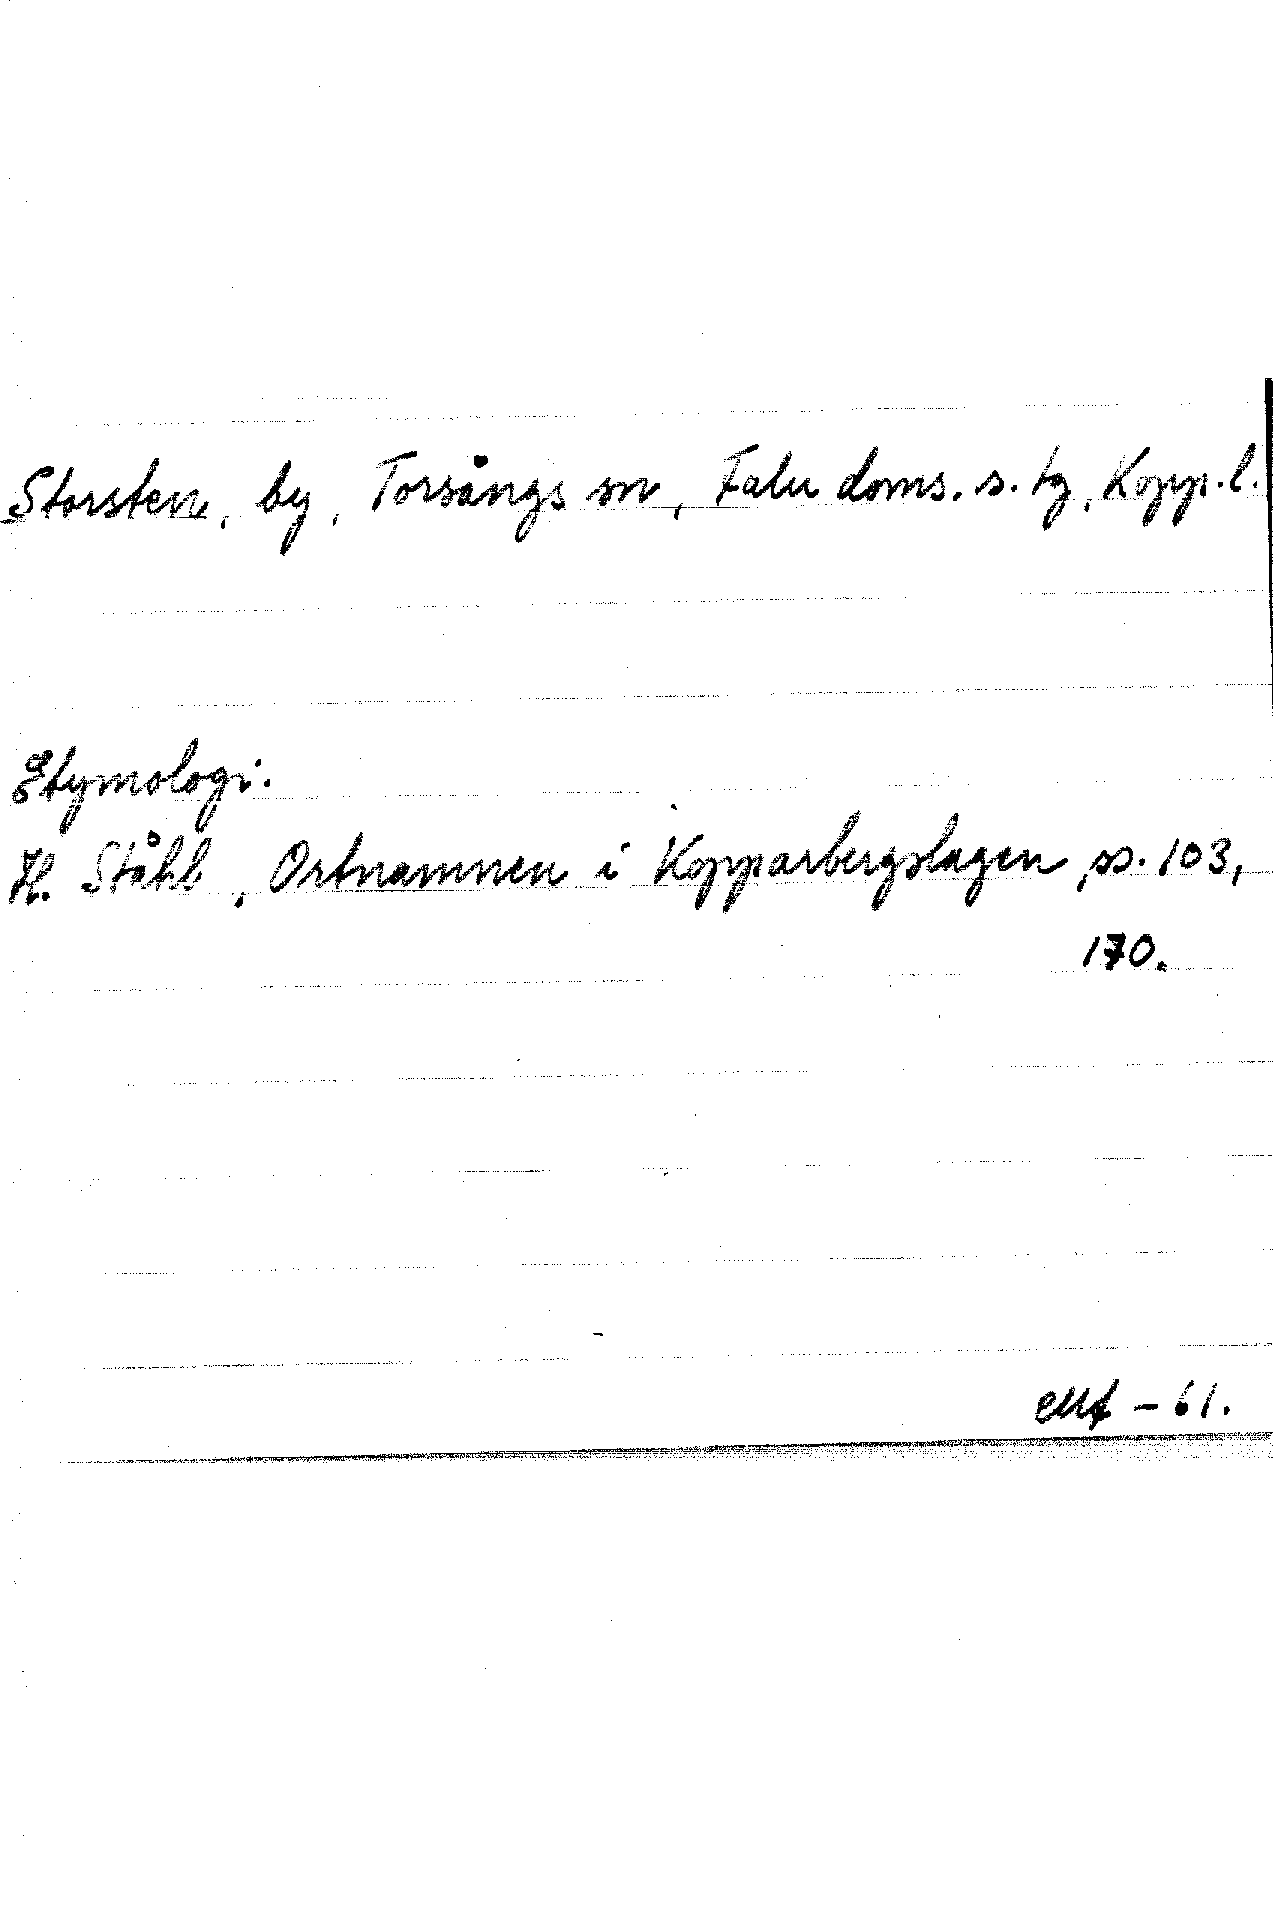 Storsten, by, Torsångs sn, Falu doms. s. tg, Kopp. l.
Etymologi.
H. Ståhl, Ortnamnen i Kopparbergslagen, ss. 103,
170.
- 61.